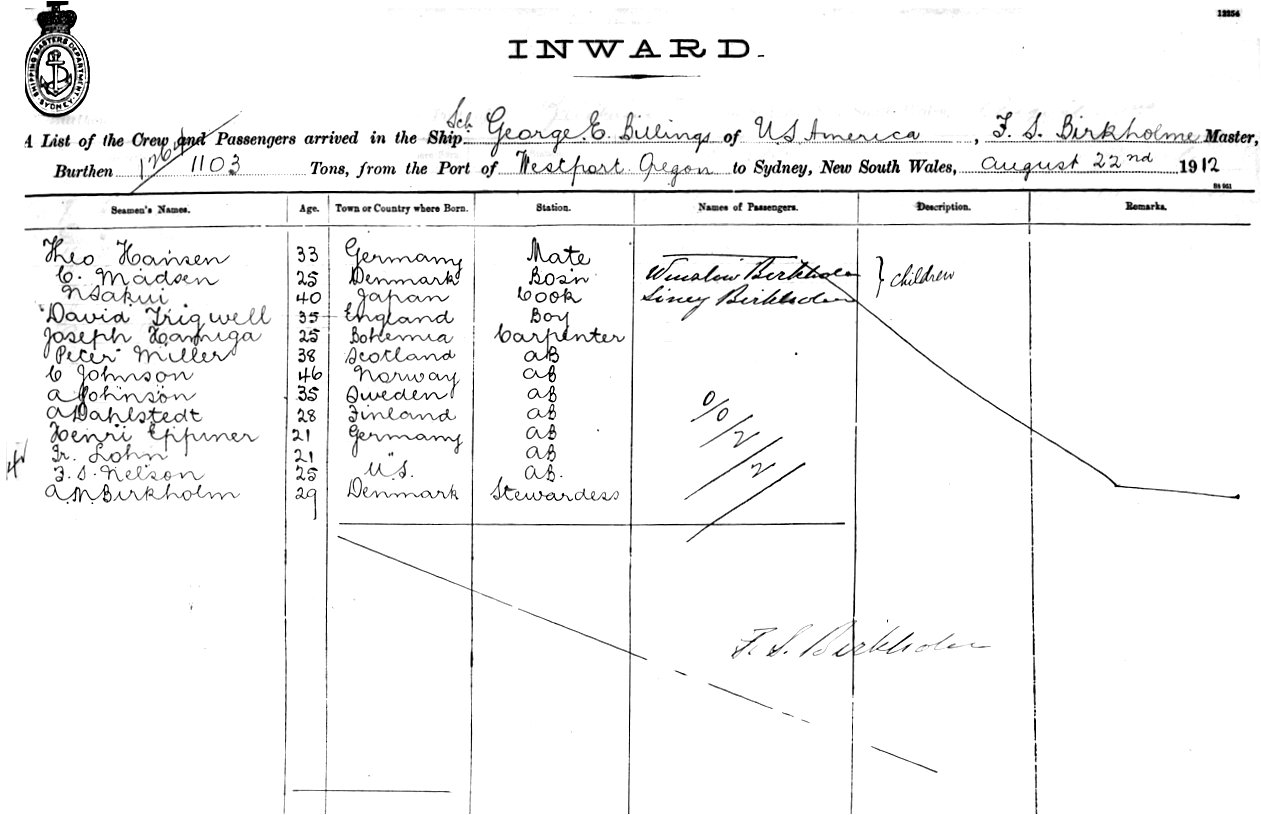 12254
SHIPPING MASTERS DEPARTMENT
SYDNEY
INWARD.
A List of the Crew and Passengers arrived in the Ship Sch George E. Billings of U S America, F. S. Birkholme Master,
Burthen 1103 Tons, from the Port of Westport Oregon to Sydney, New South Wales, August 22nd 1912
Seamen's Names. Age. Town or Country where Born. Station. Names of Passengers. Description. Remarks.
Theo Hansen 33 Germany Mate
C. Madsen 25 Denmark Bos'n Winslow Birkholm } Children
N Sakui 40 Japan Cook Birkholm
David Trigwell 35 England Boy
Joseph 25 Bohemia Carpenter
Peter Miller 38 Scotland AB
C Johnson 46 Norway AB
A Johnson 35 Sweden AB
A Dahlstedt 28 Finland AB 0/0/2/2/
Henri 21 Germany AB
Fr. Lohn 21 " AB
F. S. Nelson 25 U.S. AB.
A. M. Birkholm 29 Denmark Stewardess
F. S. Birkholm